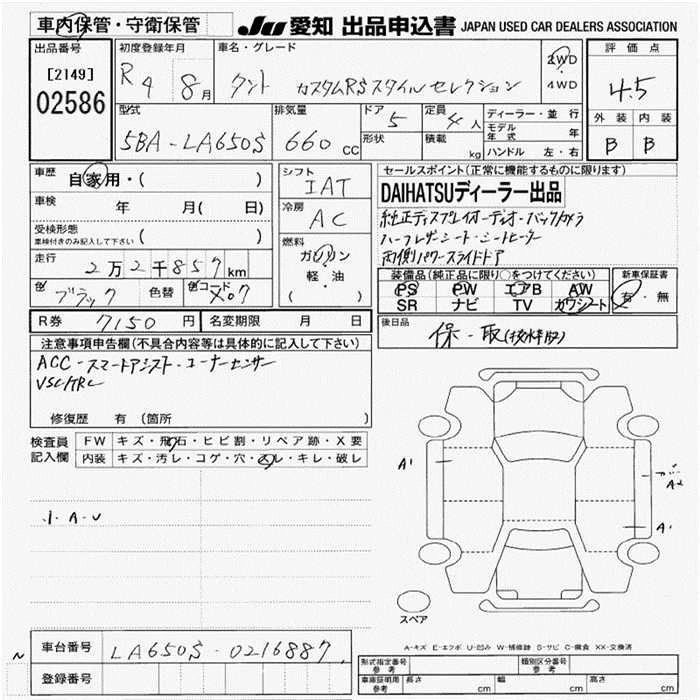 車内保管・守衛保管
JU 愛知 出品申込書 JAPAN USED CAR DEALERS ASSOCIATION
出品番号
[2149]
02586
初度登録年月
R4 8月
車名・グレード
タント カスタムRSスタイルセレクション
2WD
・
4WD
評価点
4.5
外装 内装
B B
型式
5BA-LA650S
排気量
660 CC
ドア 5
形状
定員 4人
積載 kg
ディーラー・並行
モデル年式 年
ハンドル 左・右
車歴 自家用・( )
車検 年 月( 日)
受検形態
車検付きのみ記入して下さい ( )
走行 2万2千857 km
色 ブラック 色替 色コード X07
シフト
IAT
冷房
AC
燃料
ガソリン
軽・油
( )
セールスポイント(正常に機能するものに限ります)
DAIHATSUディーラー出品
純正ディスプレイオーディオ・バックカメラ
ハーフレザーシート・シートヒーター
両側パワースライドドア
装備品(純正品に限り○をつけてください)
PS PW エアB AW
SR ナビ TV カワシート
新車保証書
有・無
R券 7150円 名変期限 月 日
後日品
保・取
注意事項申告欄(不具合内容等は具体的に記入して下さい)
ACC・スマートアシスト・コーナーセンサー
VSC/TRC
修復歴 有 (箇所 )
検査員記入欄
FW キズ・飛石・ヒビ割・リペア跡・X要
内装 キズ・汚レ・コゲ・穴・スレ・キレ・破レ
A-U
A1
A2
A1
スペア
A-キズ E-エクボ U-凹み W-補修跡 S-サビ C-腐食 XX-交換済
車台番号 LA650S-0216887
登録番号
形式指定番号 参考
類別区分番号 参考
車庫証明用 参考 長さ cm 幅 cm 高さ cm